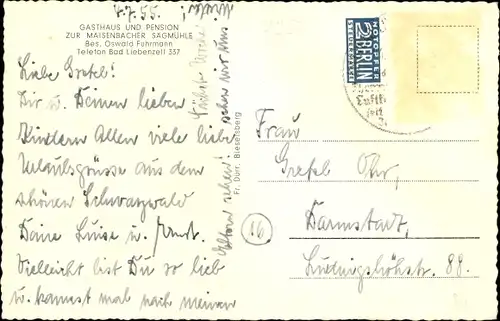 4.7.55.
GASTHAUS UND PENSION
ZUR MAISENBACHER SAGMÜHLE
Bes. Oswald Fuhrmann
Telefon Bad Liebenzell 337
Liebe Gretel!
Dir u. Deinen lieben
Kindern Allen viele liebe
Urlaubsgrüsse aus dem
schönen Schwarzwald
Deine Luise u.
Vielleicht bist Du so lieb
u. kannst mal nach meinen
Eltern sehen!
sehen wir uns
Fr. Dürr, Beselsberg
NOTOPFER
2 BERLIN
STEUERMARKE
Frau
Gretel Ohr,
Darmstadt,
Ludwigshöhstr. 88.
16